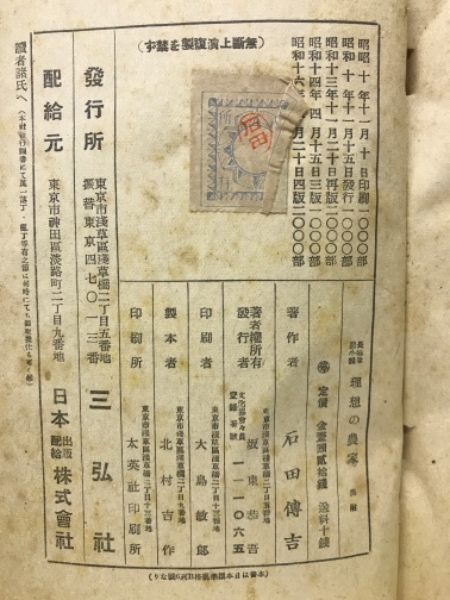 (無斷上演複製を禁ず)
昭和十年十一月十日印刷一〇〇〇部
昭和十年十一月十五日發行一〇〇〇部
昭和十三年十一月二十日再版一〇〇〇部
昭和十四年四月十五日三版一〇〇〇部
昭和十六年 月二十日四版二〇〇〇部
石田
理想の農家
定價 金壹圓貳拾錢 送料十錢
著作者 石田傳吉
東京市淺草區淺草橋二丁目五番地
著者權所有
發行者 坂東恭吾
文化協會々員
登録番號 一一一〇六五
東京市淺草區淺草橋二丁目十三番地
印刷者 大島敏郎
東京市淺草區淺草橋二丁目九番地
製本者 北村吉作
東京市淺草區淺草橋二丁目十三番地
印刷所 太英社印刷所
發行所 東京市淺草區淺草橋二丁目五番地 三弘社
振替東京四七〇一三番
配給元 東京市神田區淡路町二丁目九番地 日本出版配給株式會社
讀者諸氏へ